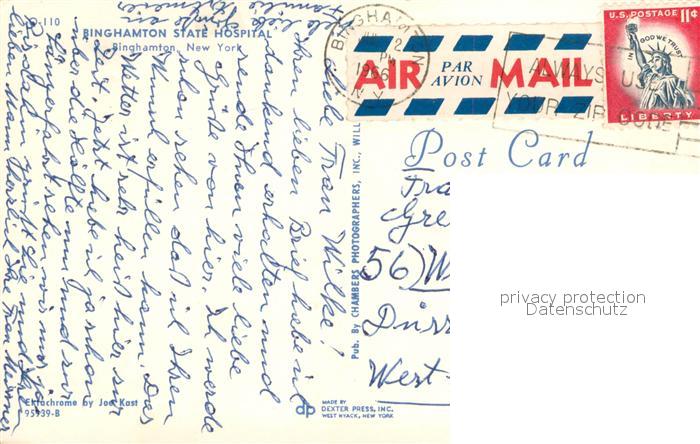 D-110
BINGHAMTON STATE HOSPITAL
Binghamton, New York
BINGHAMTON
2
PM
1966
N.Y.
AIR PAR AVION MAIL
U.S. POSTAGE 11¢
IN GOD WE TRUST
LIBERTY
ALWAYS USE
YOUR ZIP CODE
Post Card
Liebe Frau Wilke!
Ihren lieben Brief habe ich
dankend erhalten und
sende Ihnen viele liebe
Grüße von hier. Ich werde
sehen daß ich Ihren
Wunsch erfüllen kann. Das
Wetter ist sehr heiß hier zur
Zeit. Jetzt habe ich ja schon
über die Hälfte um und zur
Sängerfahrt sehen wir uns ja
Bis dahin Herzliche
Ihre Frau
lieben Mann
Familie
Frau
Gre
56) W
Dürr
West-
Pub. By CHAMBERS PHOTOGRAPHERS, INC., WILL
privacy protection
Datenschutz
Ektachrome by Joe Kast
95939-B
dp
MADE BY
DEXTER PRESS, INC.
WEST NYACK, NEW YORK